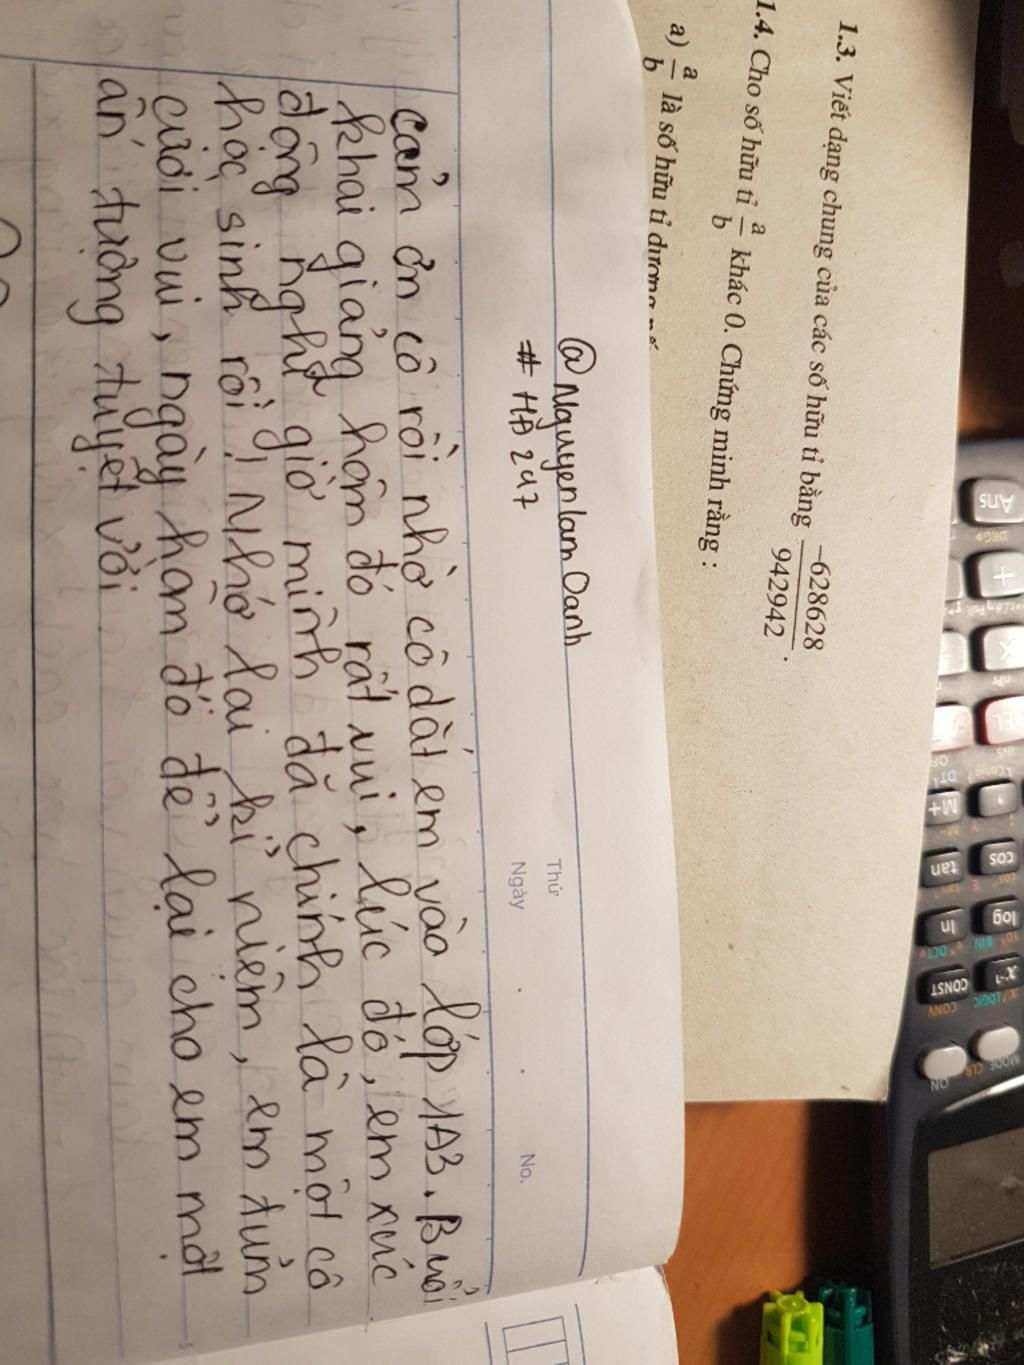 1.3. Viết dạng chung của các số hữu tỉ bằng -628628/942942.
1.4. Cho số hữu tỉ a/b khác 0. Chứng minh rằng :
a) a/b là số hữu tỉ dương
@NguyenlamOanh
# HĐ 247
Thứ
Ngày
No.
cảm ơn cô rồi nhờ cô dắt em vào lớp 1A3. Buổi
khai giảng hôm đó rất vui, lúc đó, em xúc
động nghĩ giờ mình đã chính là một cô
học sinh rồi! Nhớ lại kỉ niệm, em tủm
cười vui, ngày hôm đó để lại cho em một
ấn tượng tuyệt vời.
Ans
DRG▸
+
×
nPr
DEL
INS
M+
DT
cos
tan
log
ln
BIN
OCT
x⁻¹
CONST
LOGIC
CONV
MODE
CLR
ON